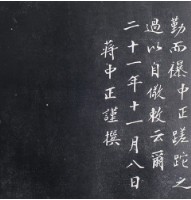 勤而襮中正蹉跎之
過以自儆敕云爾
二十一年十一月八日
蔣中正謹撰